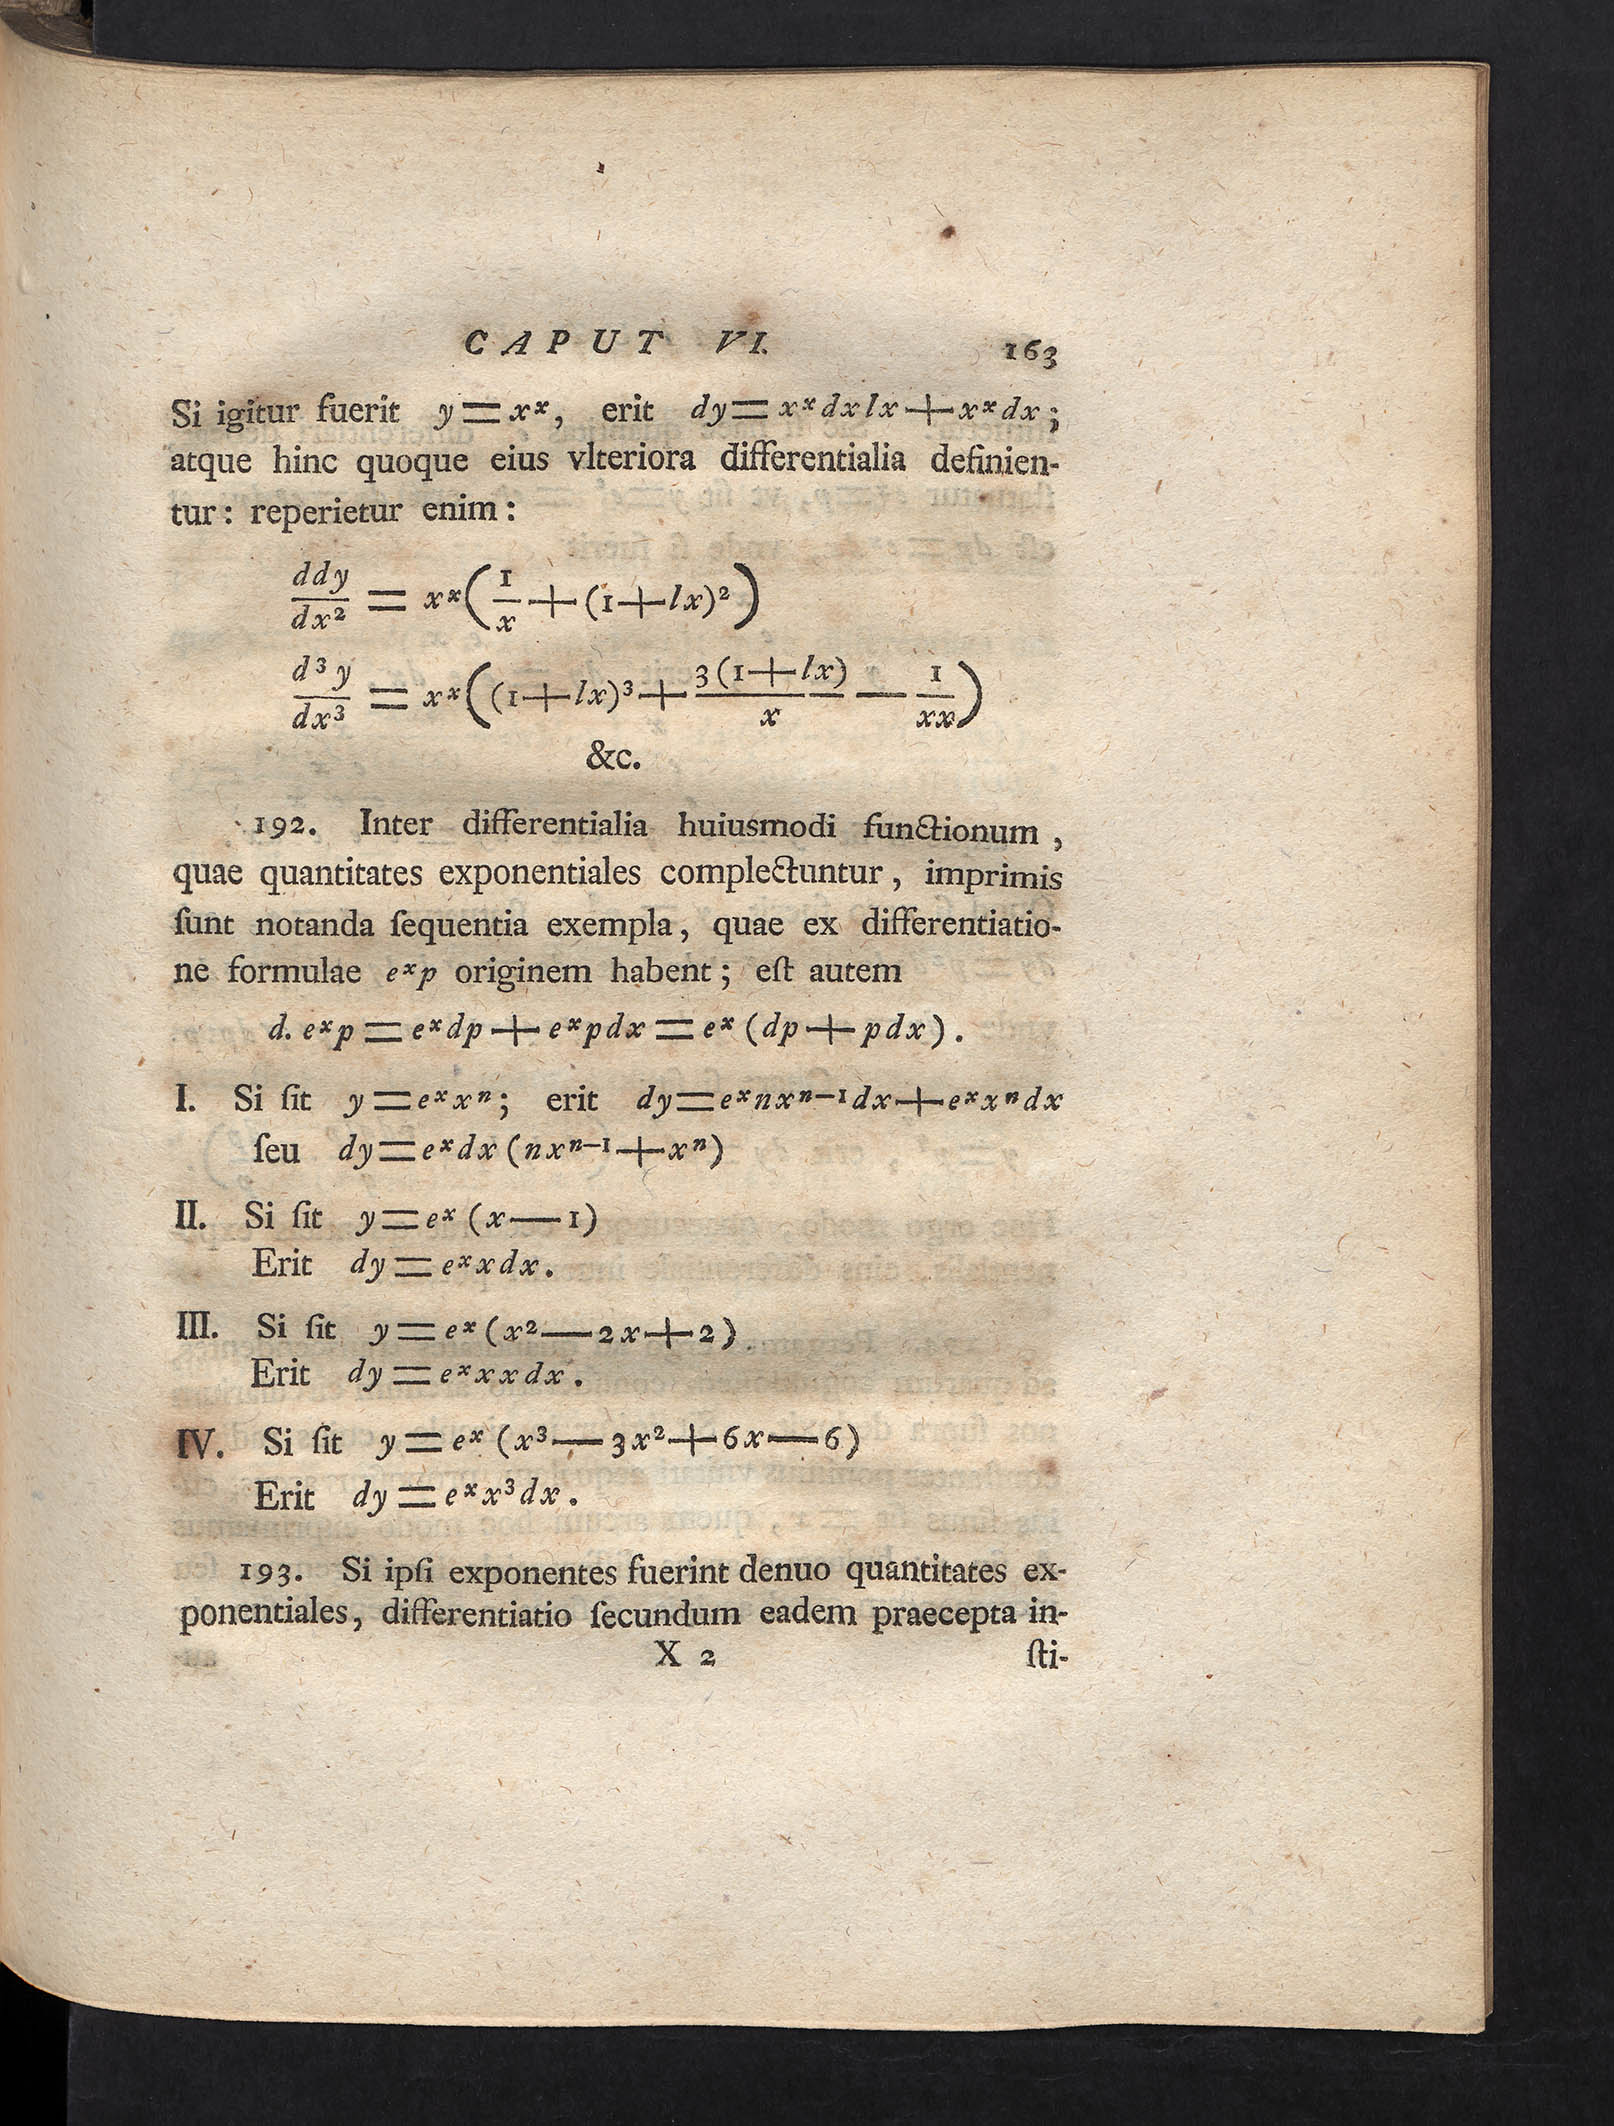 CAPUT VI. 163
Si igitur fuerit y = xˣ, erit dy = xˣ dx lx + xˣ dx ;
atque hinc quoque eius vlteriora differentialia definien-
tur : reperietur enim :
ddy/dx² = xˣ (1/x + (1 + lx)²)
d³y/dx³ = xˣ ((1 + lx)³ + 3(1 + lx)/x — 1/xx)
&c.
192. Inter differentialia huiusmodi functionum ,
quae quantitates exponentiales complectuntur , imprimis
ſunt notanda ſequentia exempla , quae ex differentiatio-
ne formulae eˣp originem habent ; eſt autem
d. eˣp = eˣdp + eˣpdx = eˣ (dp + pdx) .
I. Si ſit y = eˣxⁿ ; erit dy = eˣnxⁿ⁻¹dx + eˣxⁿdx
ſeu dy = eˣdx (nxⁿ⁻¹ + xⁿ)
II. Si ſit y = eˣ (x — 1)
Erit dy = eˣxdx .
III. Si ſit y = eˣ (x² — 2x + 2)
Erit dy = eˣxxdx .
IV. Si ſit y = eˣ (x³ — 3x² + 6x — 6)
Erit dy = eˣx³dx .
193. Si ipſi exponentes fuerint denuo quantitates ex-
ponentiales , differentiatio ſecundum eadem praecepta in-
X 2 ſti-